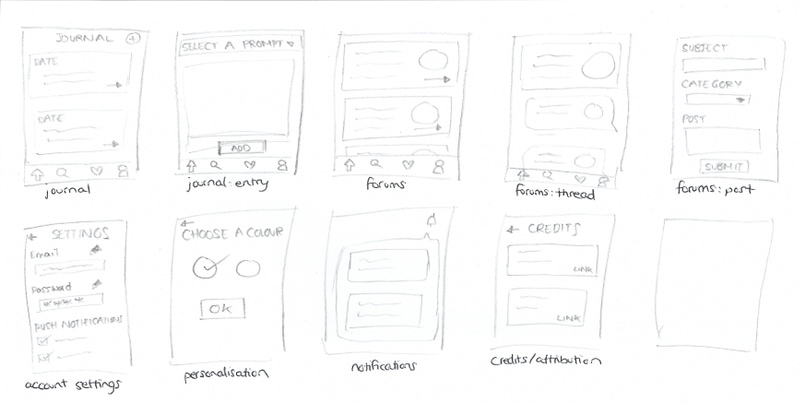 JOURNAL
DATE
DATE
journal
SELECT A PROMPT
ADD
journal:entry
forums
forums:thread
SUBJECT
CATEGORY
POST
SUBMIT
forums:post
SETTINGS
Email
Password
PUSH NOTIFICATIONS
account settings
CHOOSE A COLOUR
OK
personalisation
notifications
CREDITS
LINK
LINK
credits/attribution